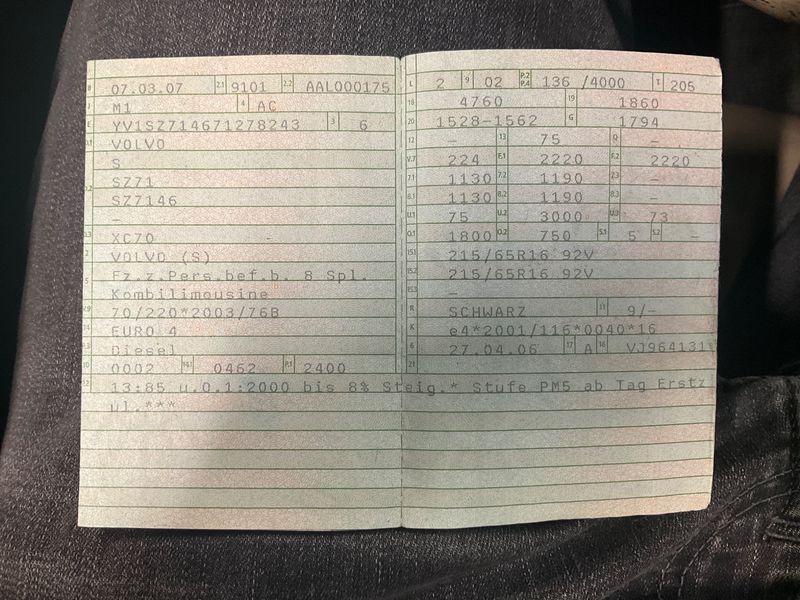 B 07.03.07 2.1 9101 2.2 AAL000175
J M1 4 AC
E YV1SZ714671278243 3 6
D.1 VOLVO
S
D.2 SZ71
SZ7146
–
D.3 XC70 -
2 VOLVO (S)
5 Fz.z.Pers.bef.b. 8 Spl.
Kombilimousine
V.9 70/220*2003/76B
14 EURO 4
P.3 Diesel
10 0002 14.1 0462 P.1 2400
22 13:85 u.0.1:2000 bis 8% Steig.* Stufe PM5 ab Tag Erstz
ul.***
L 2 9 02 P.2 P.4 136 /4000 T 205
18 4760 19 1860
20 1528-1562 G 1794
12 – 13 75 Q –
V.7 224 F.1 2220 F.2 2220
7.1 1130 7.2 1190 7.3 –
8.1 1130 8.2 1190 8.3 –
U.1 75 U.2 3000 U.3 73
O.1 1800 O.2 750 S.1 5 S.2 –
15.1 215/65R16 92V
15.2 215/65R16 92V
15.3 –
R SCHWARZ 11 9/-
K e4*2001/116*0040*16
6 27.04.06 17 A 16 VJ964131
21